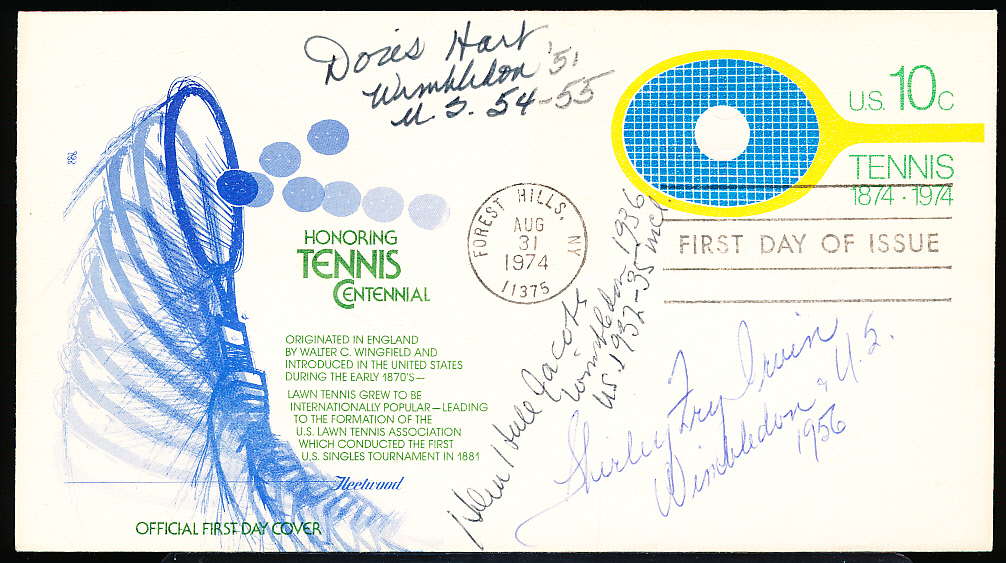 Doris Hart
Wimbledon '51
U.S. 54-55
U.S. 10c
TENNIS
1874 · 1974
FOREST HILLS, NY
AUG
31
1974
11375
FIRST DAY OF ISSUE
HONORING
TENNIS
CENTENNIAL
ORIGINATED IN ENGLAND
BY WALTER C. WINGFIELD AND
INTRODUCED IN THE UNITED STATES
DURING THE EARLY 1870'S—
LAWN TENNIS GREW TO BE
INTERNATIONALLY POPULAR—LEADING
TO THE FORMATION OF THE
U.S. LAWN TENNIS ASSOCIATION
WHICH CONDUCTED THE FIRST
U.S. SINGLES TOURNAMENT IN 1881
Fleetwood
OFFICIAL FIRST DAY COVER
Helen Hull Jacobs
Wimbledon 1936
US 1932-35 incl.
Shirley Fry Irvin
Wimbledon & U.S.
1956